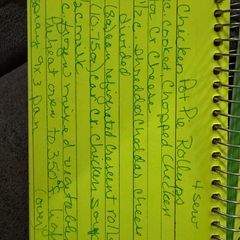 Chicken Pot Pie Rollups
4 serv
c. cooked chopped chicken
oz Cr Cheese
/2 c shredded cheddar cheese
divided
8 oz can refrigerated crescent rolls
10.75 oz can cr chicken soup
c milk
c frozen mixed vegetables
heat oven to 350°
spray 9x3 pan
(over)